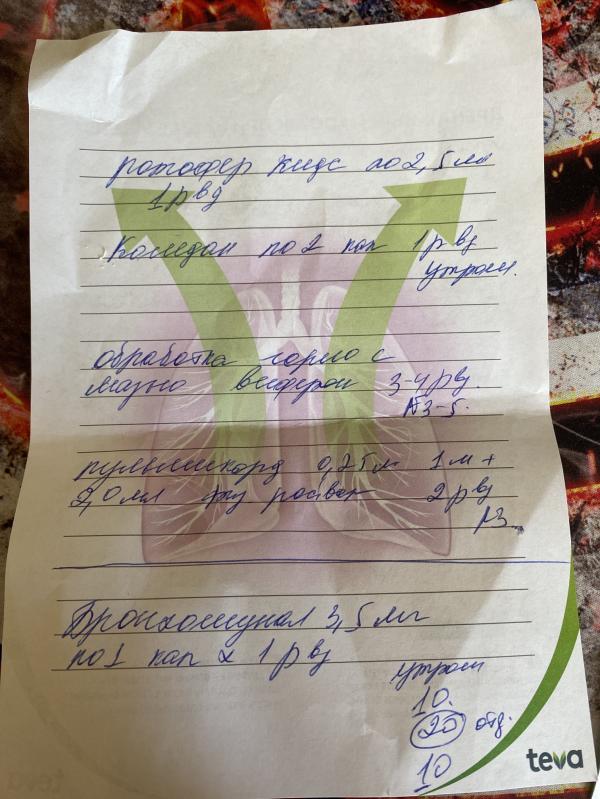 ротофер кидс по 2,5 мл
1 р вд
Комедан по 2 кап 1 р вд
утром.
обработка горло с
мазью виферон 3-4 р вд.
N3-5.
пульмикорд 0,25 м 1 м +
2,0 мл физ раствор 2 р вд
N3
Бронхомунал 3,5 мг
по 1 кап х 1 р вд
утром
10.
20 отд.
10
teva